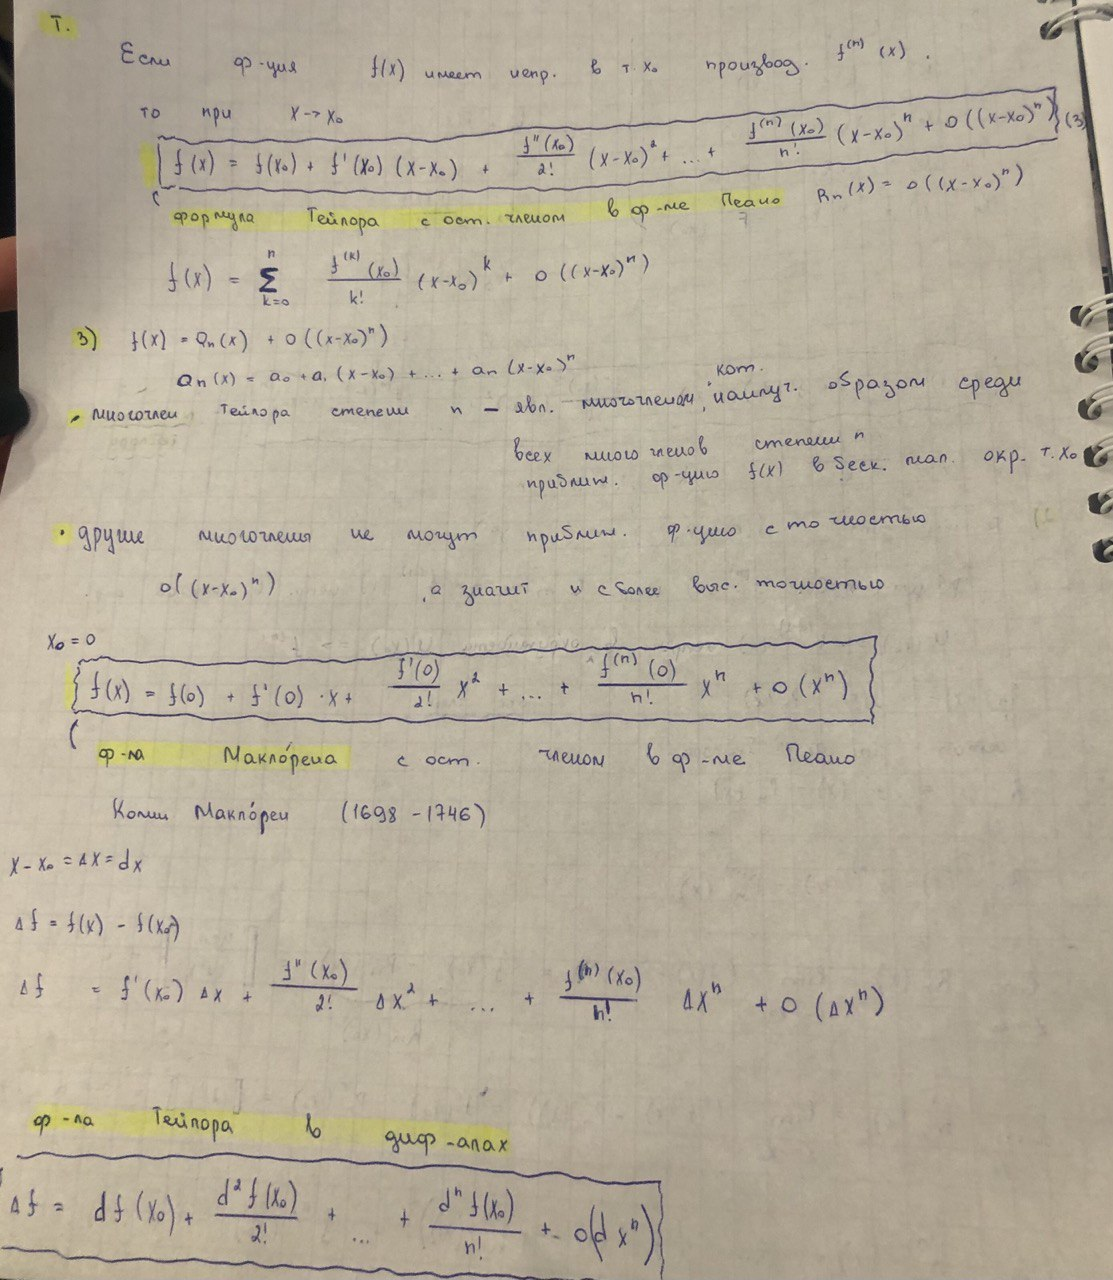 Т.
Если ф-ция f(x) имеет непр. в т. x₀ производ. f⁽ⁿ⁾(x).
то при x→x₀
f(x) = f(x₀) + f'(x₀)(x-x₀) + f''(x₀)/2! (x-x₀)² + ... + f⁽ⁿ⁾(x₀)/n! (x-x₀)ⁿ + o((x-x₀)ⁿ) (3)
формула Тейлора с ост. членом в ф-ме Пеано Rn(x) = o((x-x₀)ⁿ)
f(x) = Σ_{k=0}^{n} f⁽ᵏ⁾(x₀)/k! (x-x₀)ᵏ + o((x-x₀)ⁿ)
3) f(x) = Qn(x) + o((x-x₀)ⁿ)
Qn(x) = a₀ + a₁(x-x₀) + ... + an(x-x₀)ⁿ
- многочлен Тейлора степени n – явл. многочленом, кот. наилуч. образом среди
всех многочленов степени n
приближ. ф-цию f(x) в беск. мал. окр. т. x₀
· другие многочлены не могут приближ. ф-цию с точностью
o((x-x₀)ⁿ), а значит и с более выс. точностью
x₀ = 0
f(x) = f(0) + f'(0)·x + f'(0)/2! x² + ... + f⁽ⁿ⁾(0)/n! xⁿ + o(xⁿ)
ф-ла Макло́рена с ост. членом в ф-ме Пеано
Колин Макло́рен (1698 - 1746)
x - x₀ = Δx = dx
Δf = f(x) - f(x₀)
Δf = f'(x₀) Δx + f''(x₀)/2! Δx² + ... + f⁽ⁿ⁾(x₀)/n! Δxⁿ + o(Δxⁿ)
ф-ла Тейлора в диф-алах
Δf = df(x₀) + d²f(x₀)/2! + ... + dⁿf(x₀)/n! + o(dxⁿ)